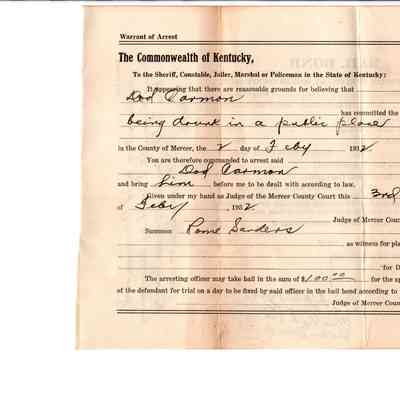 Warrant of Arrest
The Commonwealth of Kentucky,
To the Sheriff, Constable, Jailer, Marshal or Policeman in the State of Kentucky:
It appearing that there are reasonable grounds for believing that
Dod Carmon
has committed the
being drunk in a public place
in the County of Mercer, the 2 day of Feby 1952
You are therefore commanded to arrest said
Dod Carmon
and bring him before me to be dealt with according to law.
Given under my hand as Judge of the Mercer County Court this 3rd
of Feby, 1952
Judge of Mercer Coun
Summon Rome Sanders
as witness for pla
for D
The arresting officer may take bail in the sum of $100.00 for the ap
of the defendant for trial on a day to be fixed by said officer in the bail bond according to
Judge of Mercer Coun